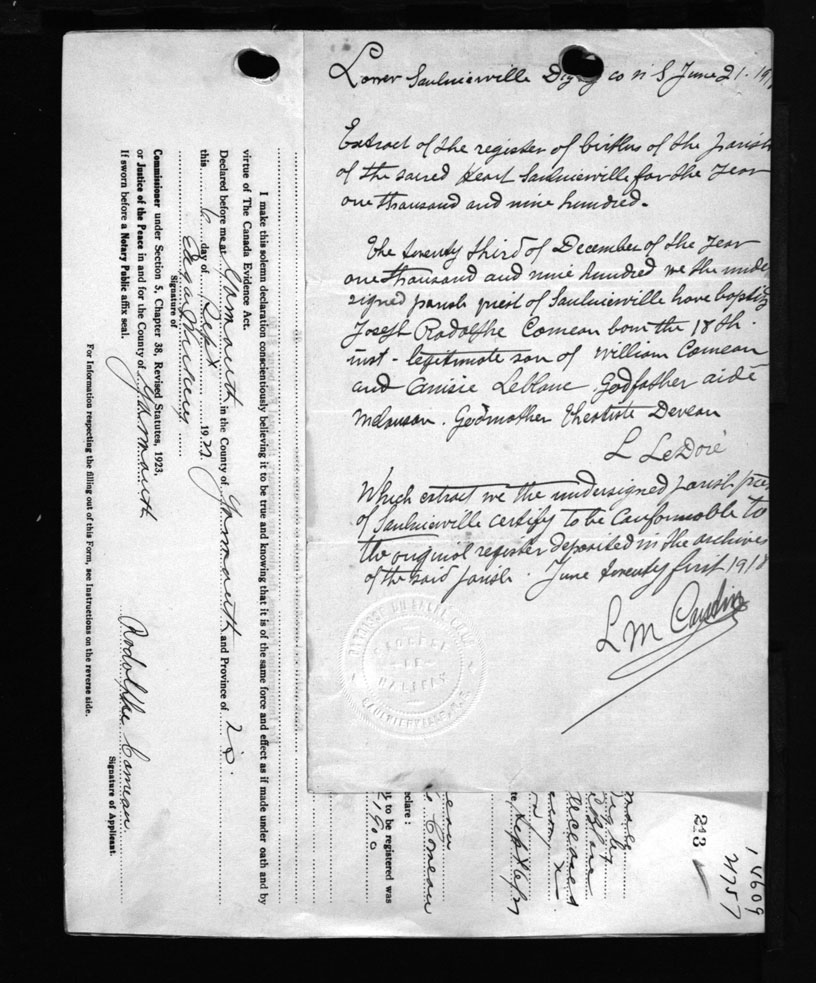 Lower Saulnierville Digby co N S June 21. 191
Extract of the register of births of the parish
of the sacred Heart Saulnierville for the Year
one thousand and nine hundred.
The twenty third of December of the Year
one thousand and nine hundred we the unde
signed parish priest of Saulnierville have baptiz
Joseph Rodolphe Comeau born the 18th
inst - legitimate son of William Comeau
and Anisie Leblanc. Godfather aidé
Melanson. Godmother Theotiste Deveau
L LeDoré
Which extract we the undersigned parish prie
of Saulnierville certify to be conformable to
the original register deposited in the archives
of the said parish. June twenty first 1918
L M
DIOCESE
OF
HALIFAX
SAULNIERVILLE, N.S.
I make this solemn declaration conscientiously believing it to be true and knowing that it is of the same force and effect as if made under oath and by
virtue of The Canada Evidence Act.
Declared before me at Yarmouth in the County of Yarmouth and Province of N.S.
this 6 day of Sept 19
Signature of
Commissioner under Section 5, Chapter 38, Revised Statutes, 1923,
or Justice of the Peace in and for the County of Yarmouth
If sworn before a Notary Public affix seal.
Rodolphe Comeau
Signature of Applicant.
For Information respecting the filling out of this Form, see Instructions on the reverse side.
eau
Comeau
eclare :
t to be registered was
1900
te Sept 6/
213
14609
21757